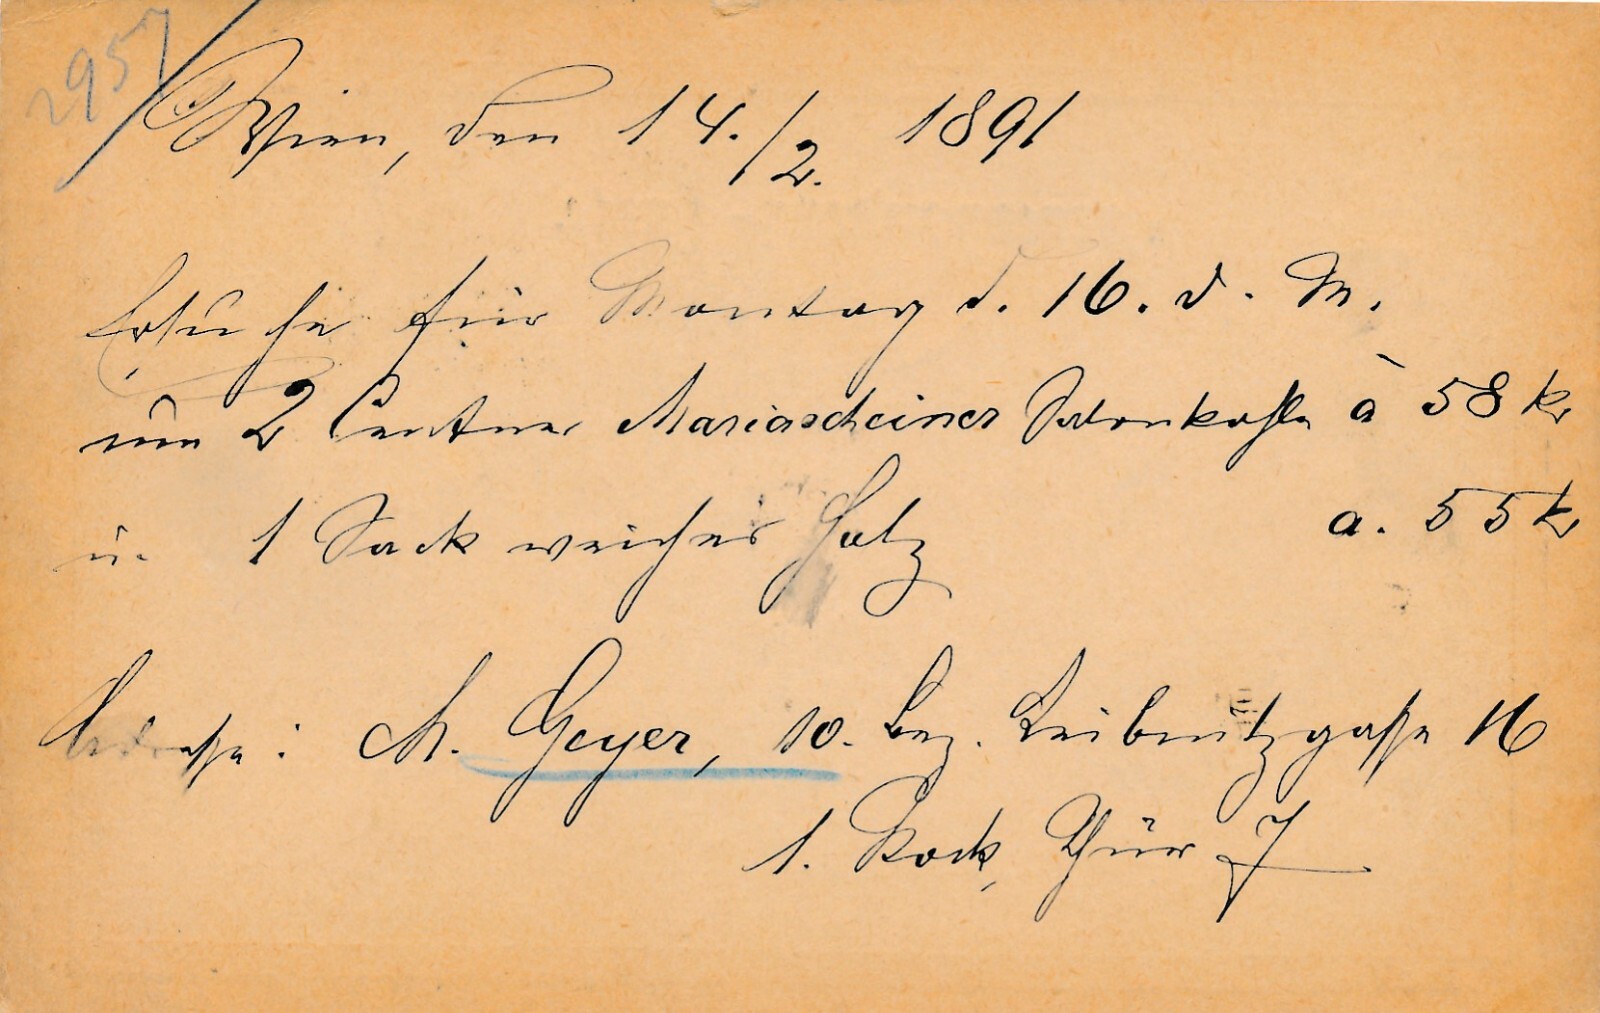 2957
Wien, den 14./2. 1891
Ersuche für Montag d. 16. d. M.
um 2 Centner Mariascheiner Salonkohle à 58 kr
u. 1 Sack weiches Holz a. 55 kr
Adresse: M. Geyer, 10. Bez. Leibnitzgasse 16
1. Stock, Thür 7